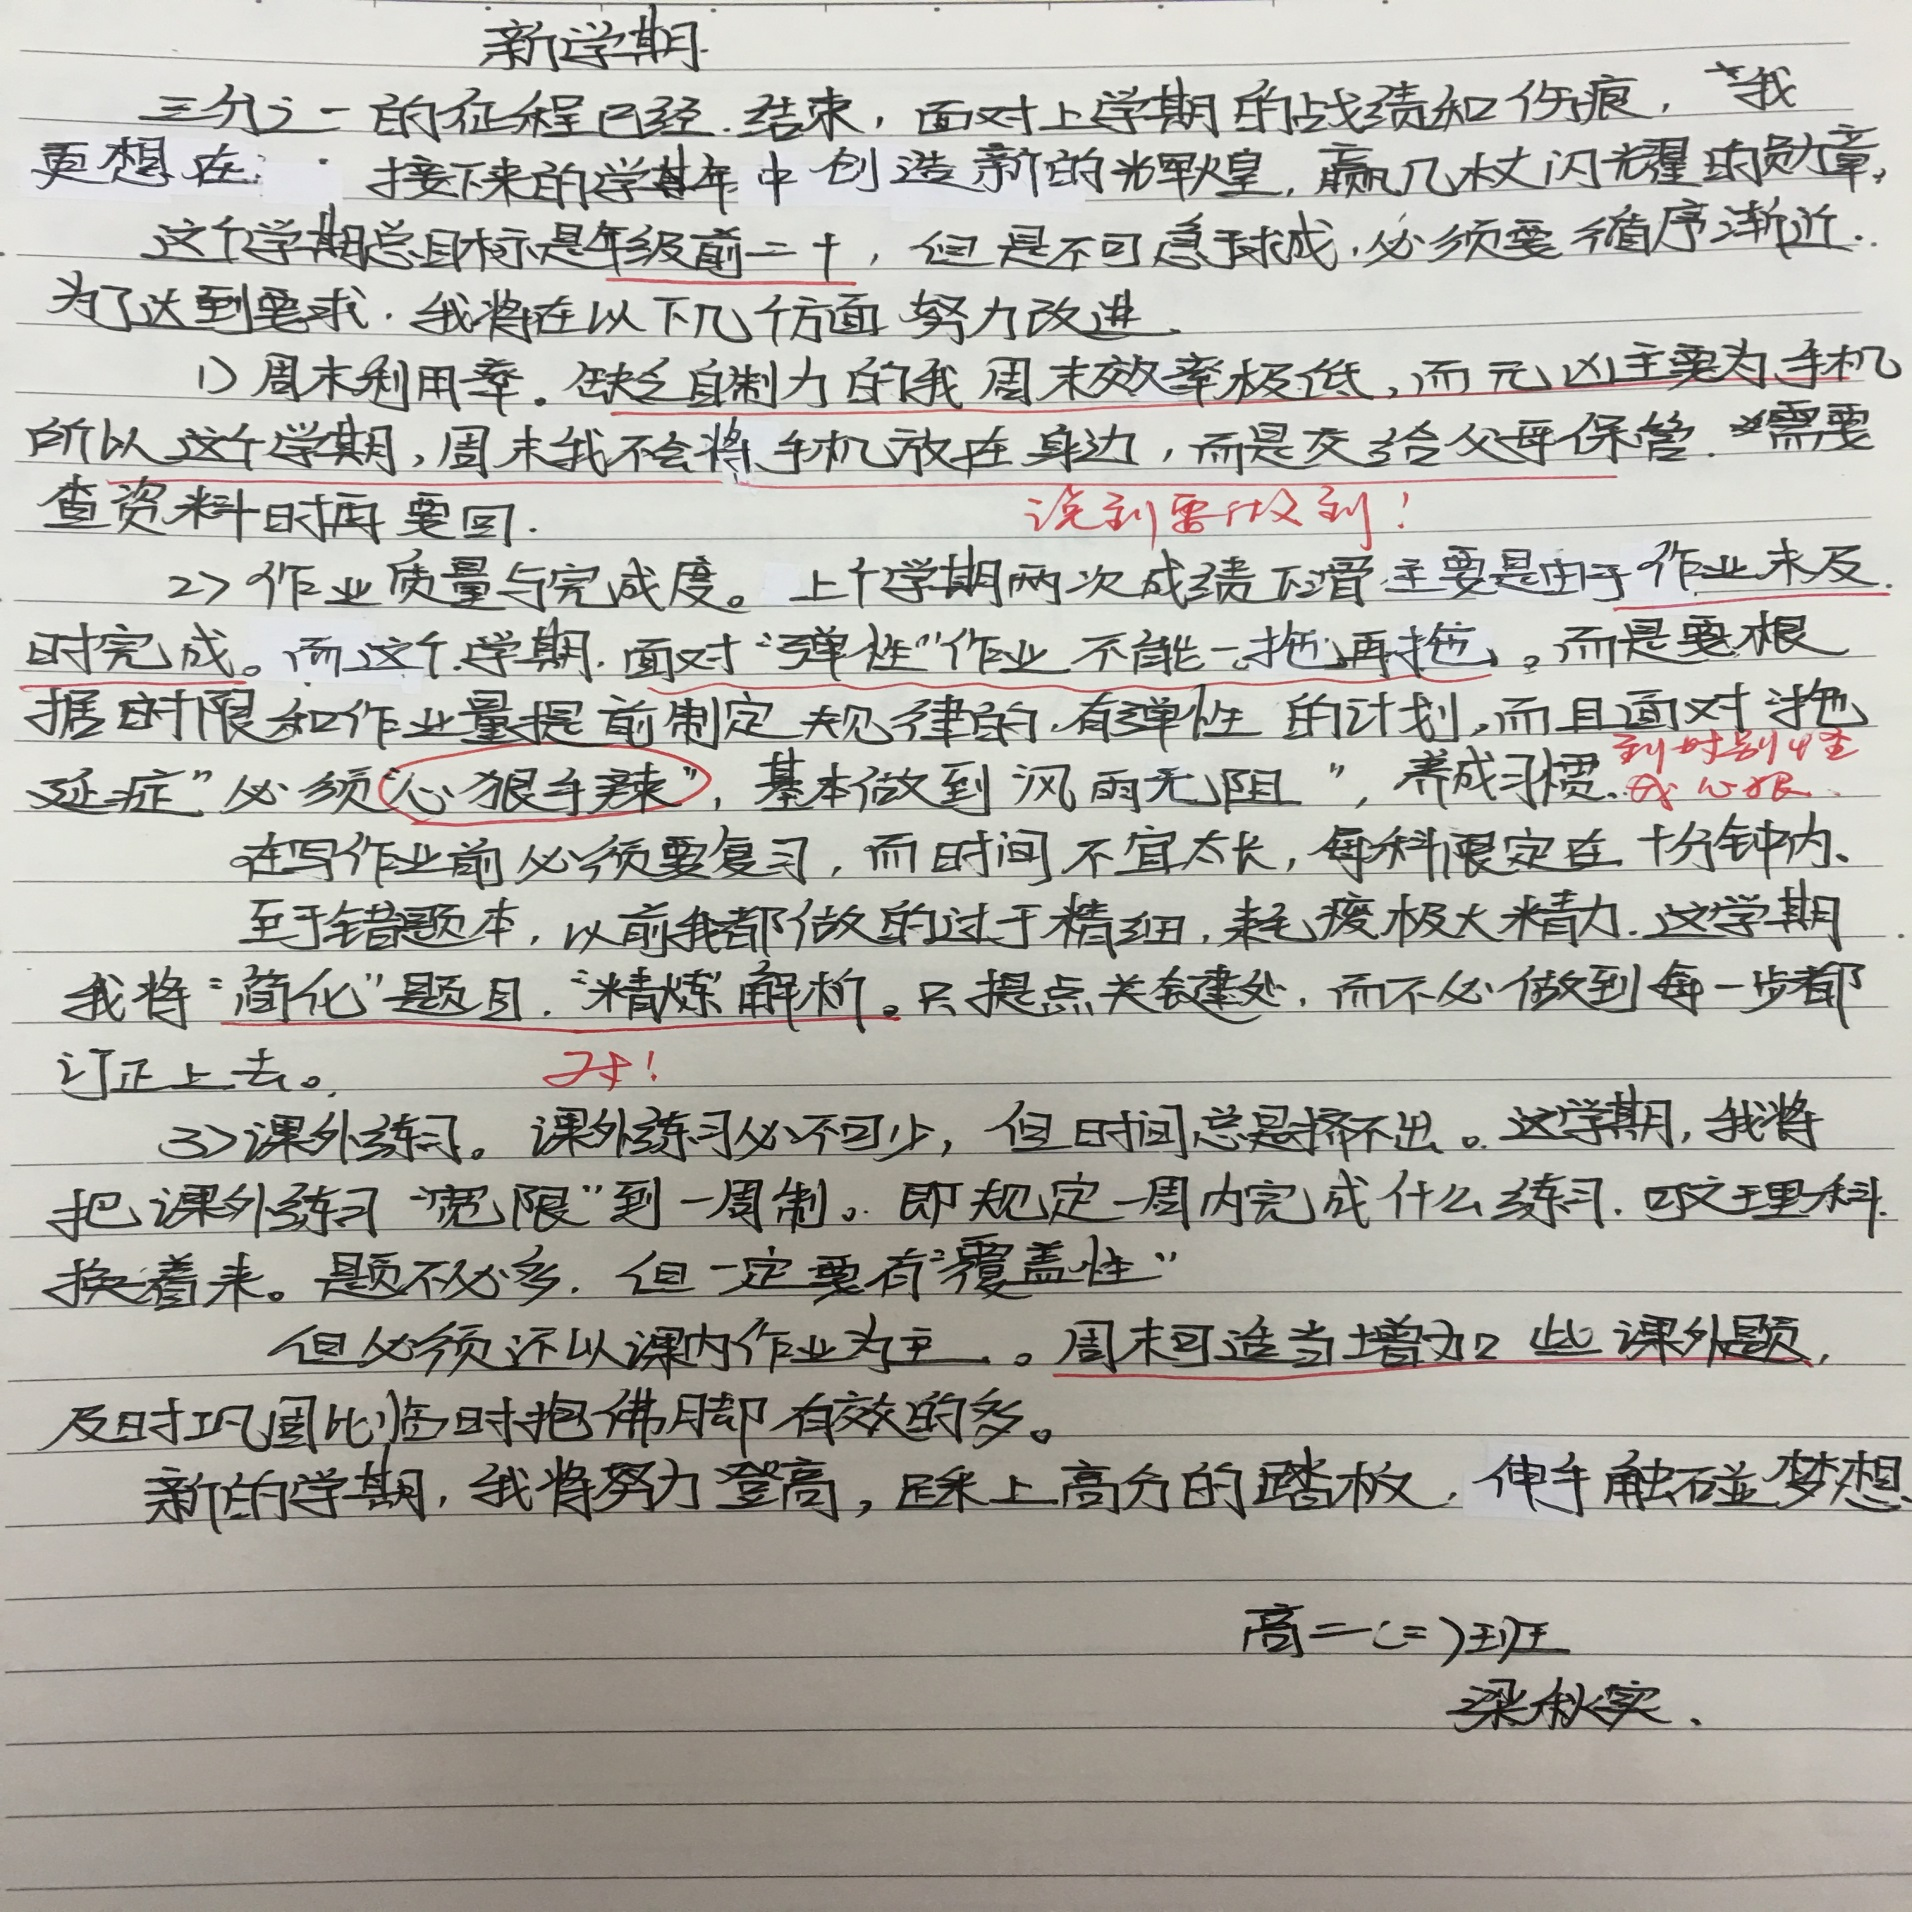 新学期.
三分之一的征程已经.结束，面对上学期的战绩和伤痕，我
更想在 接下来的学年中创造新的辉煌，赢几枚闪耀的勋章，
这个学期总目标是年级前二十，但是不可急于求成，必须要循序渐近.
为了达到要求.我将在以下几个方面努力改进.
1）周末利用率。缺乏自制力的我周末效率极低，而元凶主要为手机
所以这个学期，周末我不会将手机放在身边，而是交给父母保管.需要
查资料时再要回.
说到要做到！
2）作业质量与完成度。上个学期两次成绩下滑主要是由于作业未及
时完成。而这个学期.面对“弹性”作业不能一拖再拖，。而是要根
据时限和作业量提前制定规律的.有弹性的计划，而且面对“拖
延症”必须“心狠手辣”，基本做到风雨无阻”，养成习惯.
到时别怪
我心狠.
在写作业前必须要复习，而时间不宜太长，每科限定在十分钟内.
至于错题本，以前我都做的过于精细，耗废极大精力.这学期
我将“简化”题目.“精炼”解析。只提点关键处，而不必做到每一步都
订正上去。
对！
3）课外练习。课外练习必不可少，但时间总是挤不出。这学期，我将
把课外练习“宽限”到一周制。即规定一周内完成什么练习.可文理科
换着来。题不必多.但一定要有“覆盖性”
但必须还以课内作业为主。周末可适当增加些课外题，
及时巩固比临时抱佛脚有效的多。
新的学期，我将努力登高，踩上高分的踏板，伸手触碰梦想.
高二（二）班
梁秋实.